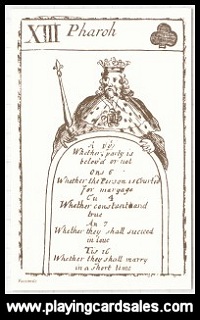 XIII Pharoh
A
Whether party is
belov'd or not
Ons 6
Whether the Person is Courted
for maryage
Cu 4
Whether constant and
true
An 7
Whether they shall succeed
in love
Tis 16
Whether they shall marry
in a short time
www.playingcardsales.com